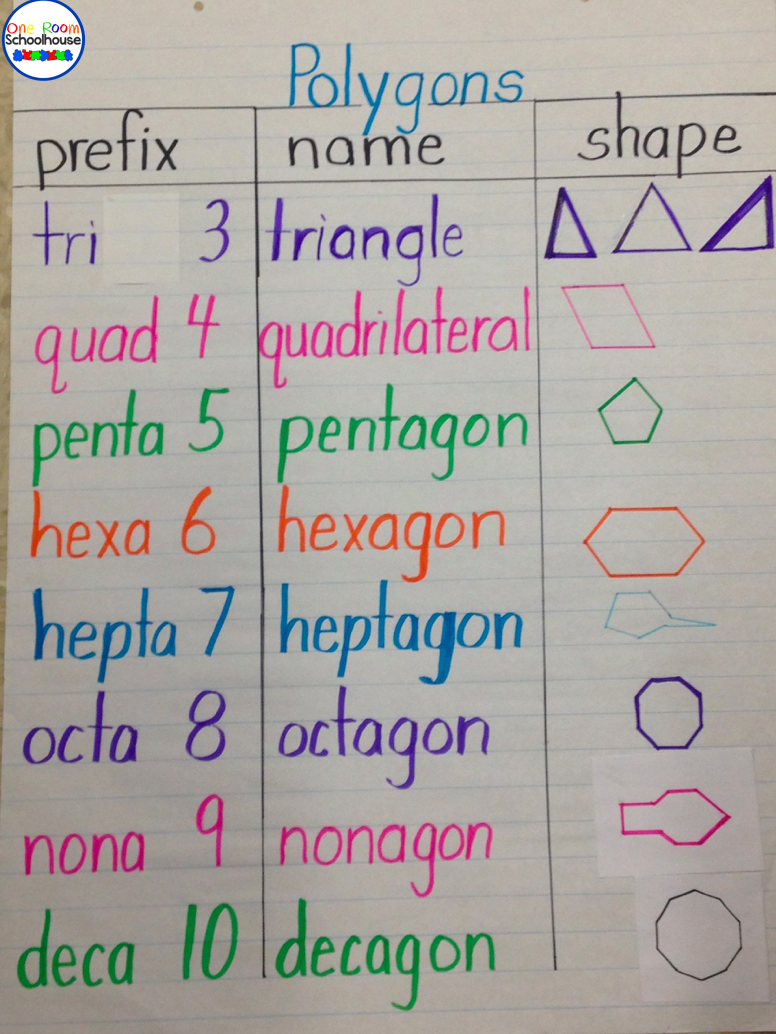 One Room
Schoolhouse
Polygons
prefix name shape
tri 3 triangle
quad 4 quadrilateral
penta 5 pentagon
hexa 6 hexagon
hepta 7 heptagon
octa 8 octagon
nona 9 nonagon
deca 10 decagon